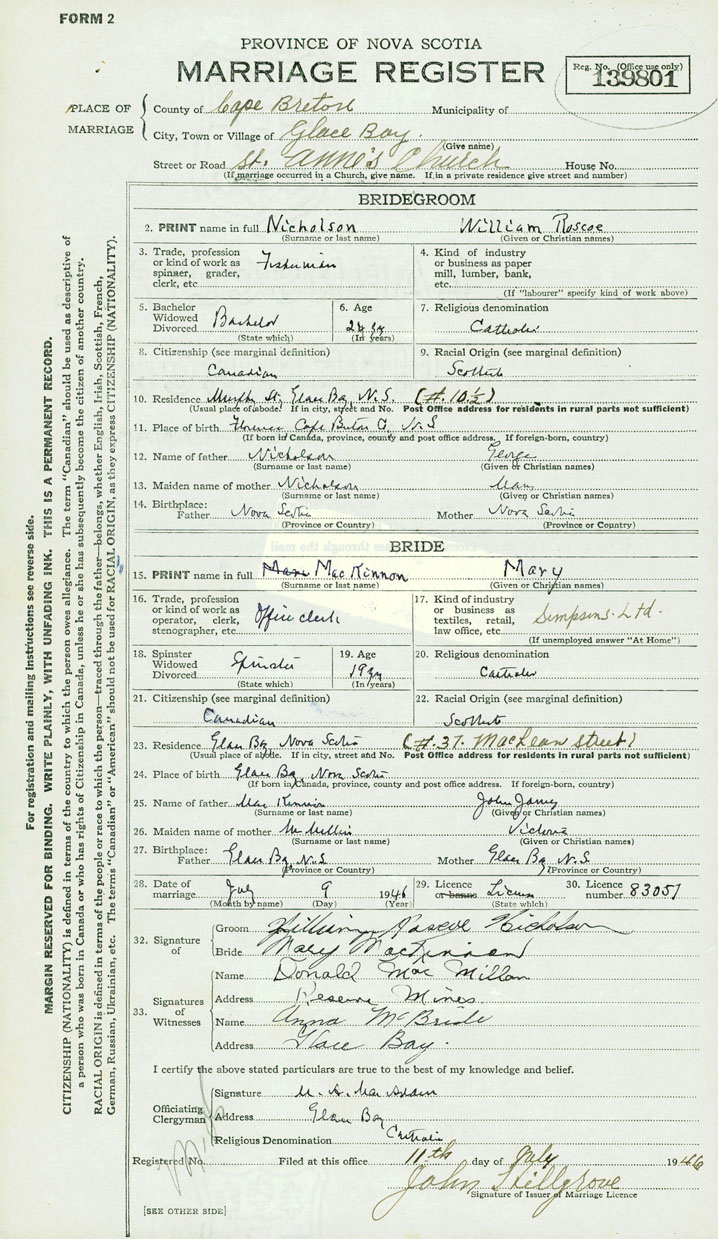 FORM 2
PROVINCE OF NOVA SCOTIA
MARRIAGE REGISTER
Reg. No. (Office use only)
139801
PLACE OF MARRIAGE
County of Cape Breton Municipality of
City, Town or Village of Glace Bay.
(Give name)
Street or Road St. Anne's Church House No.
(If marriage occurred in a Church, give name. If in a private residence give street and number)
BRIDEGROOM
2. PRINT name in full Nicholson William Roscoe
(Surname or last name) (Given or Christian names)
3. Trade, profession or kind of work as spinner, grader, clerk, etc. Fisherman
4. Kind of industry or business as paper mill, lumber, bank, etc.
(If "labourer" specify kind of work above)
5. Bachelor Widowed Divorced Bachelor
(State which)
6. Age
(In years)
7. Religious denomination
Catholic
8. Citizenship (see marginal definition)
Canadian
9. Racial Origin (see marginal definition)
Scottish
10. Residence Murphy St. Glace Bay, N.S. (#. 10½)
(Usual place of abode. If in city, street and No. Post Office address for residents in rural parts not sufficient)
11. Place of birth Florence Cape Breton Co. N.S
(If born in Canada, province, county and post office address. If foreign-born, country)
12. Name of father Nicholson George
(Surname or last name) (Given or Christian names)
13. Maiden name of mother Nicholson Mary
(Surname or last name) (Given or Christian names)
14. Birthplace: Father Nova Scotia Mother Nova Scotia
(Province or Country) (Province or Country)
BRIDE
15. PRINT name in full MacKinnon Mary
(Surname or last name) (Given or Christian names)
16. Trade, profession or kind of work as operator, clerk, stenographer, etc. Office clerk
17. Kind of industry or business as textiles, retail, law office, etc. Simpsons. Ltd.
(If unemployed answer "At Home")
18. Spinster Widowed Divorced Spinster
(State which)
19. Age 19 yr
(In years)
20. Religious denomination
Catholic
21. Citizenship (see marginal definition)
Canadian
22. Racial Origin (see marginal definition)
Scottish
23. Residence Glace Bay Nova Scotia (#. 37. MacLean street)
(Usual place of abode. If in city, street and No. Post Office address for residents in rural parts not sufficient)
24. Place of birth Glace Bay Nova Scotia
(If born in Canada, province, county and post office address. If foreign-born, country)
25. Name of father MacKinnon John James
(Surname or last name) (Given or Christian names)
26. Maiden name of mother McMillin Victoria
(Surname or last name) (Given or Christian names)
27. Birthplace: Father Glace Bay, N.S Mother Glace Bay N.S
(Province or Country) (Province or Country)
28. Date of marriage July 9 1946
(Month by name) (Day) (Year)
29. Licence or banns License
(State which)
30. Licence number 83051
32. Signature of
Groom William Roscoe Nicholson
Bride Mary MacKinnon
33. Signatures of Witnesses
Name Donald MacMillan
Address Reserve Mines
Name Anna McBride
Address Glace Bay.
I certify the above stated particulars are true to the best of my knowledge and belief.
Officiating Clergyman
Signature M. A. MacAdam
Address Glace Bay
Religious Denomination Catholic
Registered No. Filed at this office 11th day of July 1946
John Hillgrove
Signature of Issuer of Marriage Licence
[SEE OTHER SIDE]
For registration and mailing instructions see reverse side.
MARGIN RESERVED FOR BINDING. WRITE PLAINLY, WITH UNFADING INK. THIS IS A PERMANENT RECORD.
CITIZENSHIP (NATIONALITY) is defined in terms of the country to which the person owes allegiance. The term "Canadian" should be used as descriptive of
a person who was born in Canada or who has rights of Citizenship in Canada, unless he or she has subsequently become the citizen of another country.
RACIAL ORIGIN is defined in terms of the people or race to which the person—traced through the father—belongs, whether English, Irish, Scottish, French,
German, Russian, Ukrainian, etc. The terms "Canadian" or "American" should not be used for RACIAL ORIGIN, as they express CITIZENSHIP (NATIONALITY).